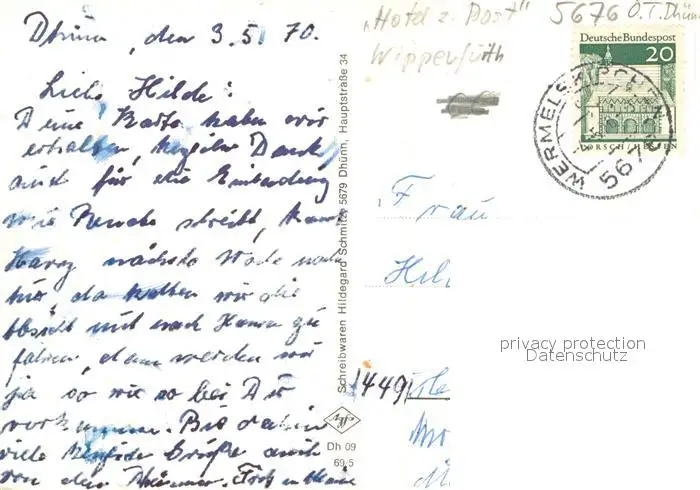 Dhünn, den 3.5.70.
Liebe Hilde!
Deine Karte haben wir
erhalten, herzlichen Dank,
auch für die Einladung
wie Renate schreibt, kommt
Harry nächste Woche nach
hier, da hatten wir die
Absicht mit nach Hamm zu
fahren, dann werden wir
ja so wie so bei Dir
vorkommen. Bis dahin
viele herzliche Grüße auch
von den
Schreibwaren Hildegard Schmitz, 5679 Dhünn, Hauptstraße 34
Dh 09
69/5
"Hotel z. Post"
Wipperfürth
5676 O.T. Dhünn
Deutsche Bundespost
20
LORSCH / HESSEN
WERMELSKIRCHEN
5678
Frau
Hil
privacy protection
Datenschutz
449